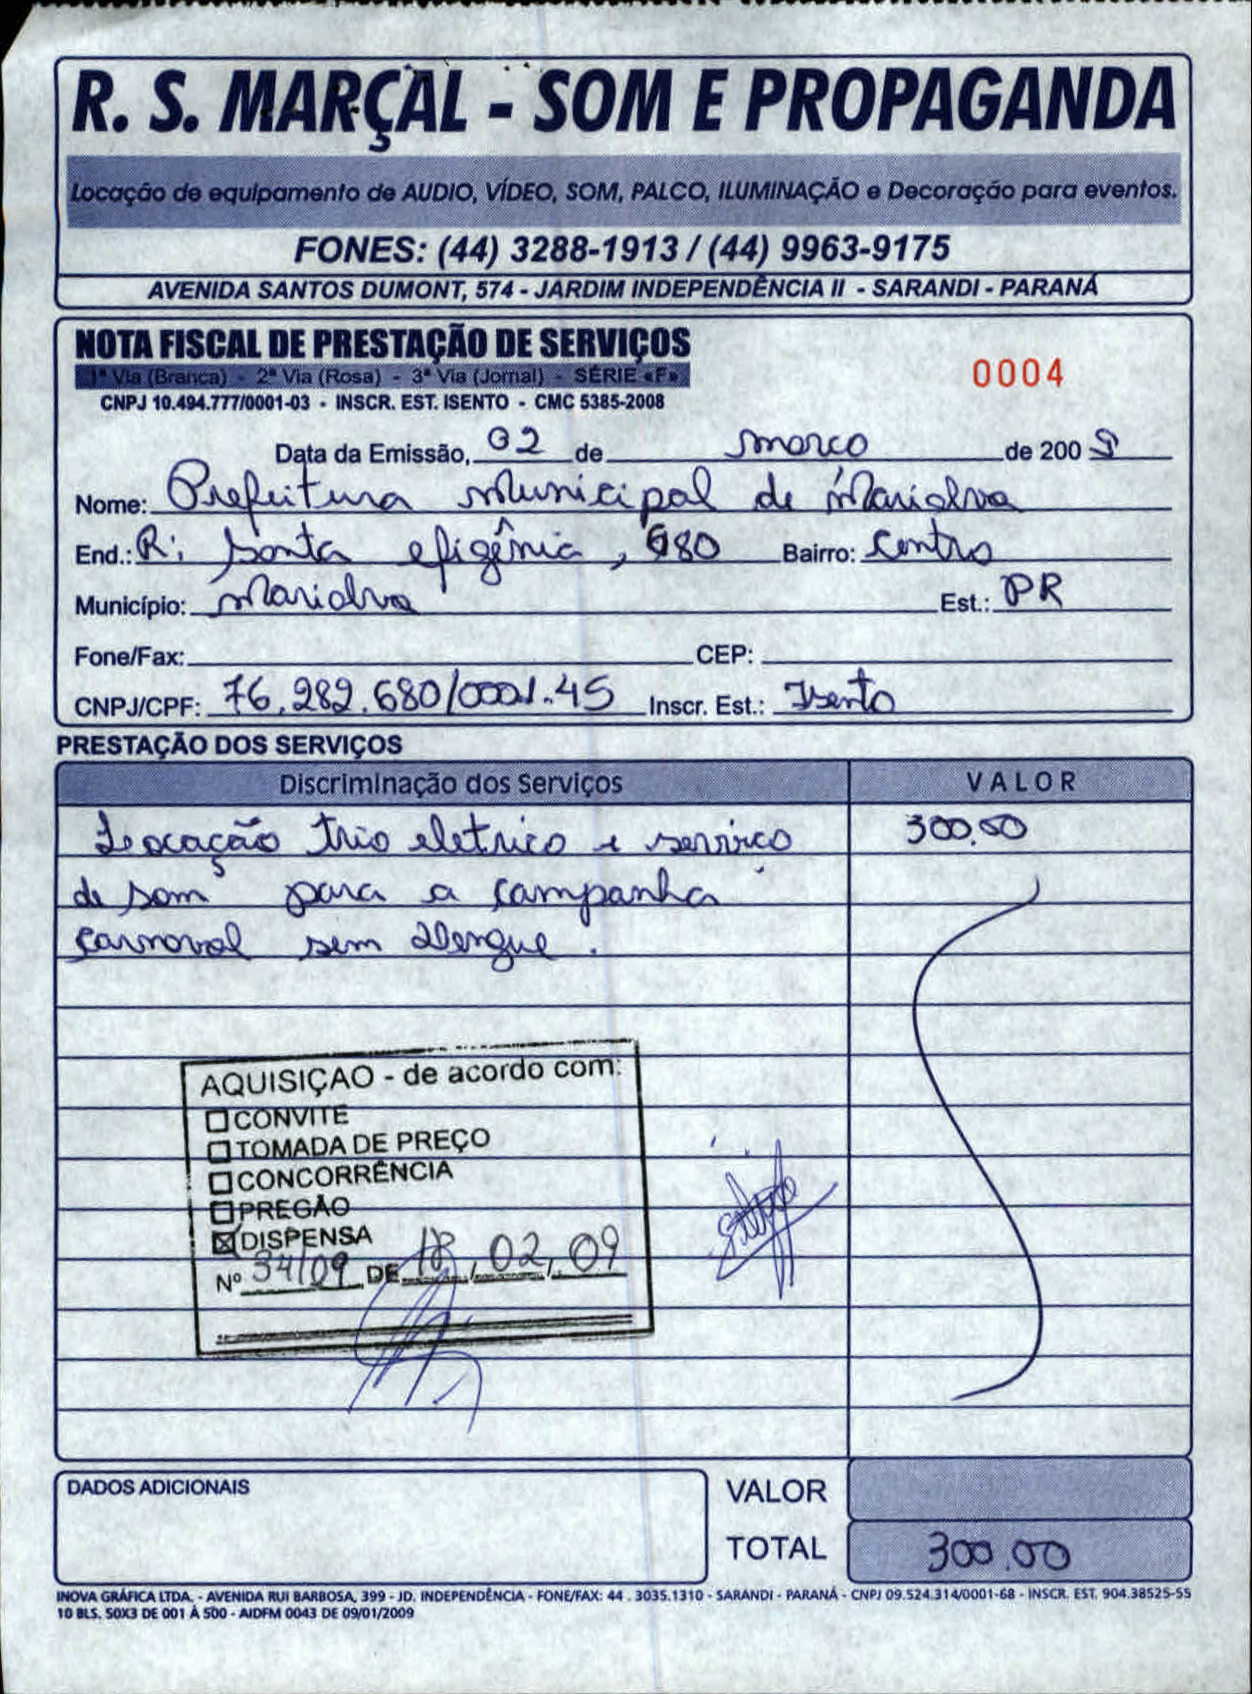 R. S. MARÇAL - SOM E PROPAGANDA
Locação de equipamento de AUDIO, VÍDEO, SOM, PALCO, ILUMINAÇÃO e Decoração para eventos.
FONES: (44) 3288-1913 / (44) 9963-9175
AVENIDA SANTOS DUMONT, 574 - JARDIM INDEPENDÊNCIA II - SARANDI - PARANÁ
NOTA FISCAL DE PRESTAÇÃO DE SERVIÇOS
1ª Via (Branca) - 2ª Via (Rosa) - 3ª Via (Jornal) - SÉRIE «F»
0004
CNPJ 10.494.777/0001-03 - INSCR. EST. ISENTO - CMC 5385-2008
Data da Emissão, 02 de março de 2009
Nome: Prefeitura Municipal de Marialva
End.: R: Santa efigênia, 680 Bairro: Centro
Município: Marialva Est.: PR
Fone/Fax: CEP:
CNPJ/CPF: 76.282.680/0001-45 Inscr. Est.: Isento
PRESTAÇÃO DOS SERVIÇOS
Discriminação dos Serviços VALOR
Locação trio eletrico e serviço 300,00
de som para a campanha
carnaval sem dengue.
AQUISIÇAO - de acordo com:
CONVITE
TOMADA DE PREÇO
CONCORRÊNCIA
PREGÃO
DISPENSA
Nº 34/09 DE 18, 02, 09
DADOS ADICIONAIS
VALOR
TOTAL 300,00
INOVA GRÁFICA LTDA. - AVENIDA RUI BARBOSA, 399 - JD. INDEPENDÊNCIA - FONE/FAX: 44 . 3035.1310 - SARANDI - PARANÁ - CNPJ 09.524.314/0001-68 - INSCR. EST. 904.38525-55
10 BLS. 50X3 DE 001 À 500 - AIDFM 0043 DE 09/01/2009